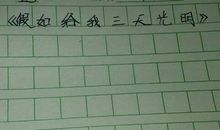 《假如给我三天光明》